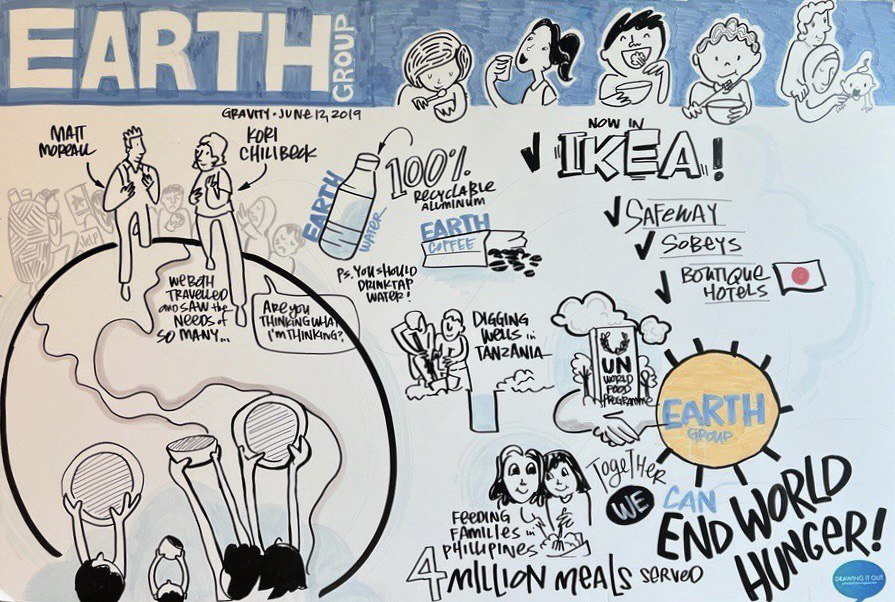 EARTH
GROUP
GRAVITY • JUNE 12, 2019
MATT
MOREAU
KORI
CHILIBECK
WE BOTH
TRAVELLED
AND SAW the
NEEDS of
SO MANY...
ARE YOU
THINKING WHAT
I'M THINKING?
EARTH
WATER
100%
RECYCLABLE
ALUMINUM
EARTH
COFFEE
PS. YOU SHOULD
DRINK TAP
WATER!
NOW IN
IKEA!
SAFEWAY
SOBEYS
BOUTIQUE
HOTELS
DIGGING
WELLS in
TANZANIA
UN
WORLD
FOOD
PROGRAMME
EARTH
GROUP
FEEDING
FAMILIES in
PHILLIPINES
4 MILLION MEALS SERVED
TOGETHER
WE CAN
END WORLD
HUNGER!
DRAWING IT OUT